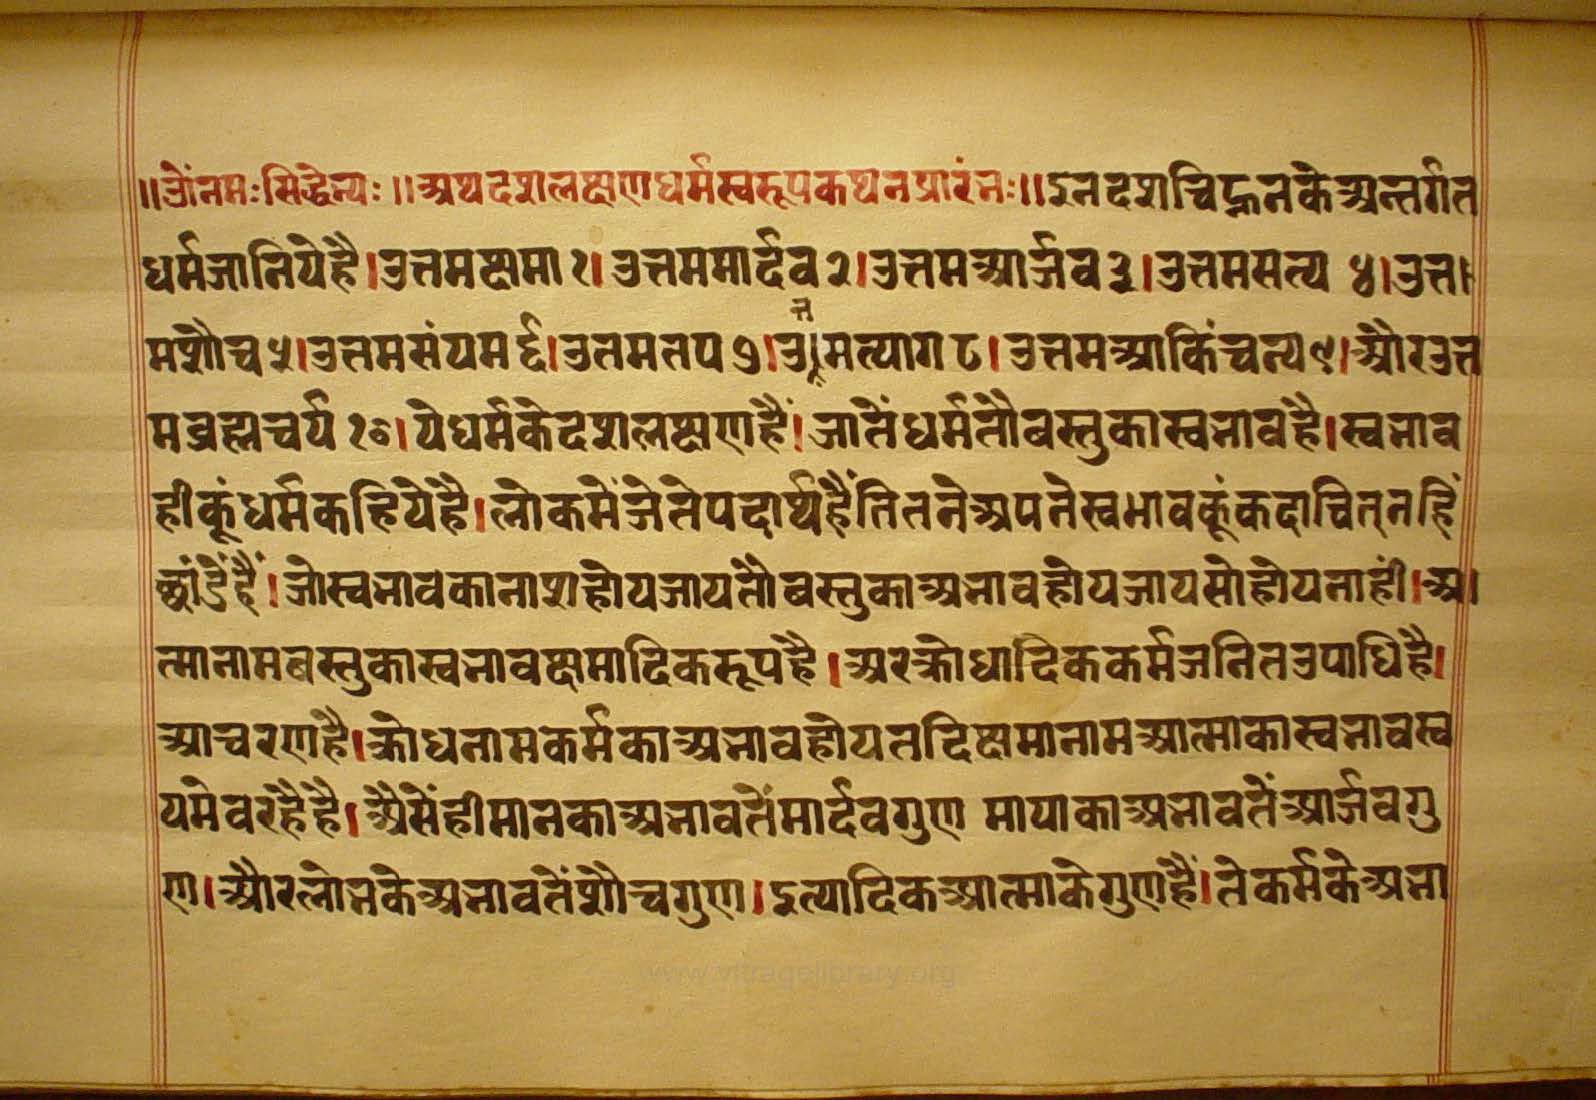 ॥ओंनमःसिद्धेभ्यः॥अथदशलक्षणधर्मस्वरूपकथनप्रारंभः॥इनदशचिह्ननकेअन्तर्गत
धर्मजानियेहै।उत्तमक्षमा१।उत्तममार्दव२।उत्तमआर्जव३।उत्तमसत्य ४।उत्त
मशौच५।उत्तमसंयम६।उतमतप७।उत्तमत्याग८।उत्तमआकिंचन्य९।औरउत्त
मब्रह्मचर्य१०।येधर्मकेदशलक्षणहैं।जातेंधर्मतौवस्तुकास्वभावहै।स्वभाव
हीकूंधर्मकहियेहै।लोकमेंजेतेपदार्थहैंतितनेअपनेस्वभावकूंकदाचित्नहिं
छांडेंहैं।जोस्वभावकानाशहोयजायतौबस्तुकाअभावहोयजायसोहोयनाहीं।आ
त्मानामबस्तुकास्वभावक्षमादिकरूपहै।अरक्रोधादिककर्मजनितउपाधिहै।
आचरणहै।क्रोधनामकर्मकाअभावहोयतदिक्षमानामआत्माकास्वभावस्व
यमेवरहैहै।अैसेंहीमानकाअभावतेंमार्दवगुण मायाकाअभावतेंआर्जवगु
ण।औरलोभकेअभावतेंशौचगुण।इत्यादिकआत्माकेगुणहैं।तेकर्मकेअभा
www.vitragolibrary.org